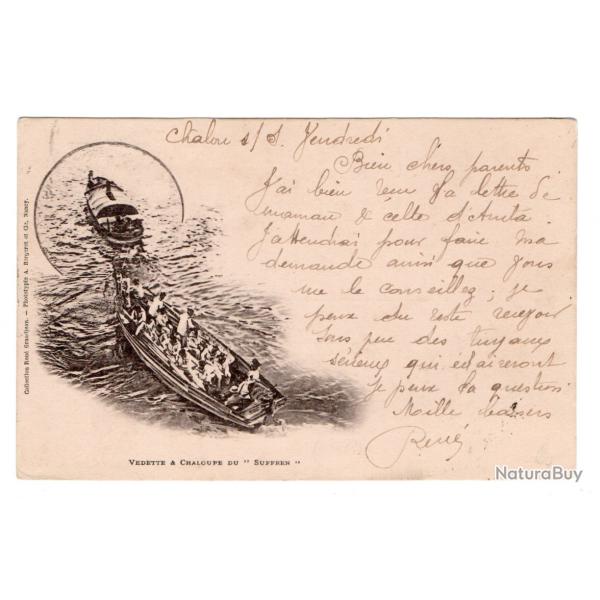 Chalon s/S. Vendredi
Bien chers parents
J'ai bien reçu la lettre de
maman & celle d'Anita.
J'attendrai pour faire ma
demande ainsi que vous
me le conseillez ; je
peux du reste recevoir
sous peu des tuyaux
sérieux qui éclaireront
je peux la question
Mille baisers
René
Collection René Grandjean. — Phototypie A. Bergeret et Cie, Nancy.
VEDETTE & CHALOUPE DU " SUFFREN "
NaturaBuy